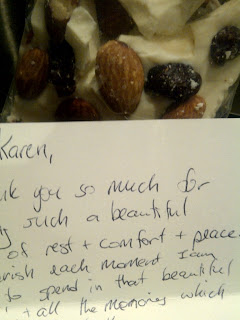 Karen,
you so much for
such a beautiful
of rest + comfort + peace.
each moment I am
to spend in that beautiful
+ all the memories which